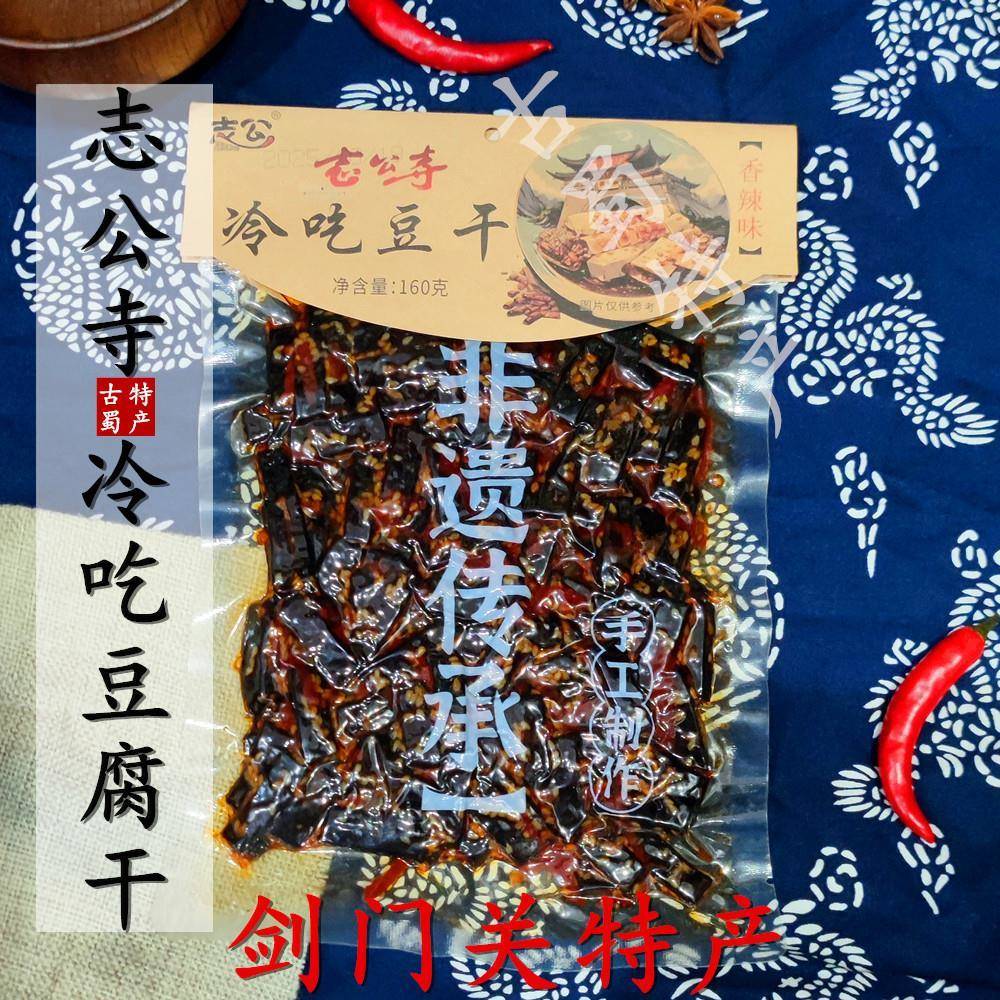 志公寺冷吃豆腐干
古蜀
特产
志公®
志公寺
冷吃豆干
净含量:160克
【香辣味】
图片仅供参考
古蜀特产
非遗传承】
手工制作
剑门关特产